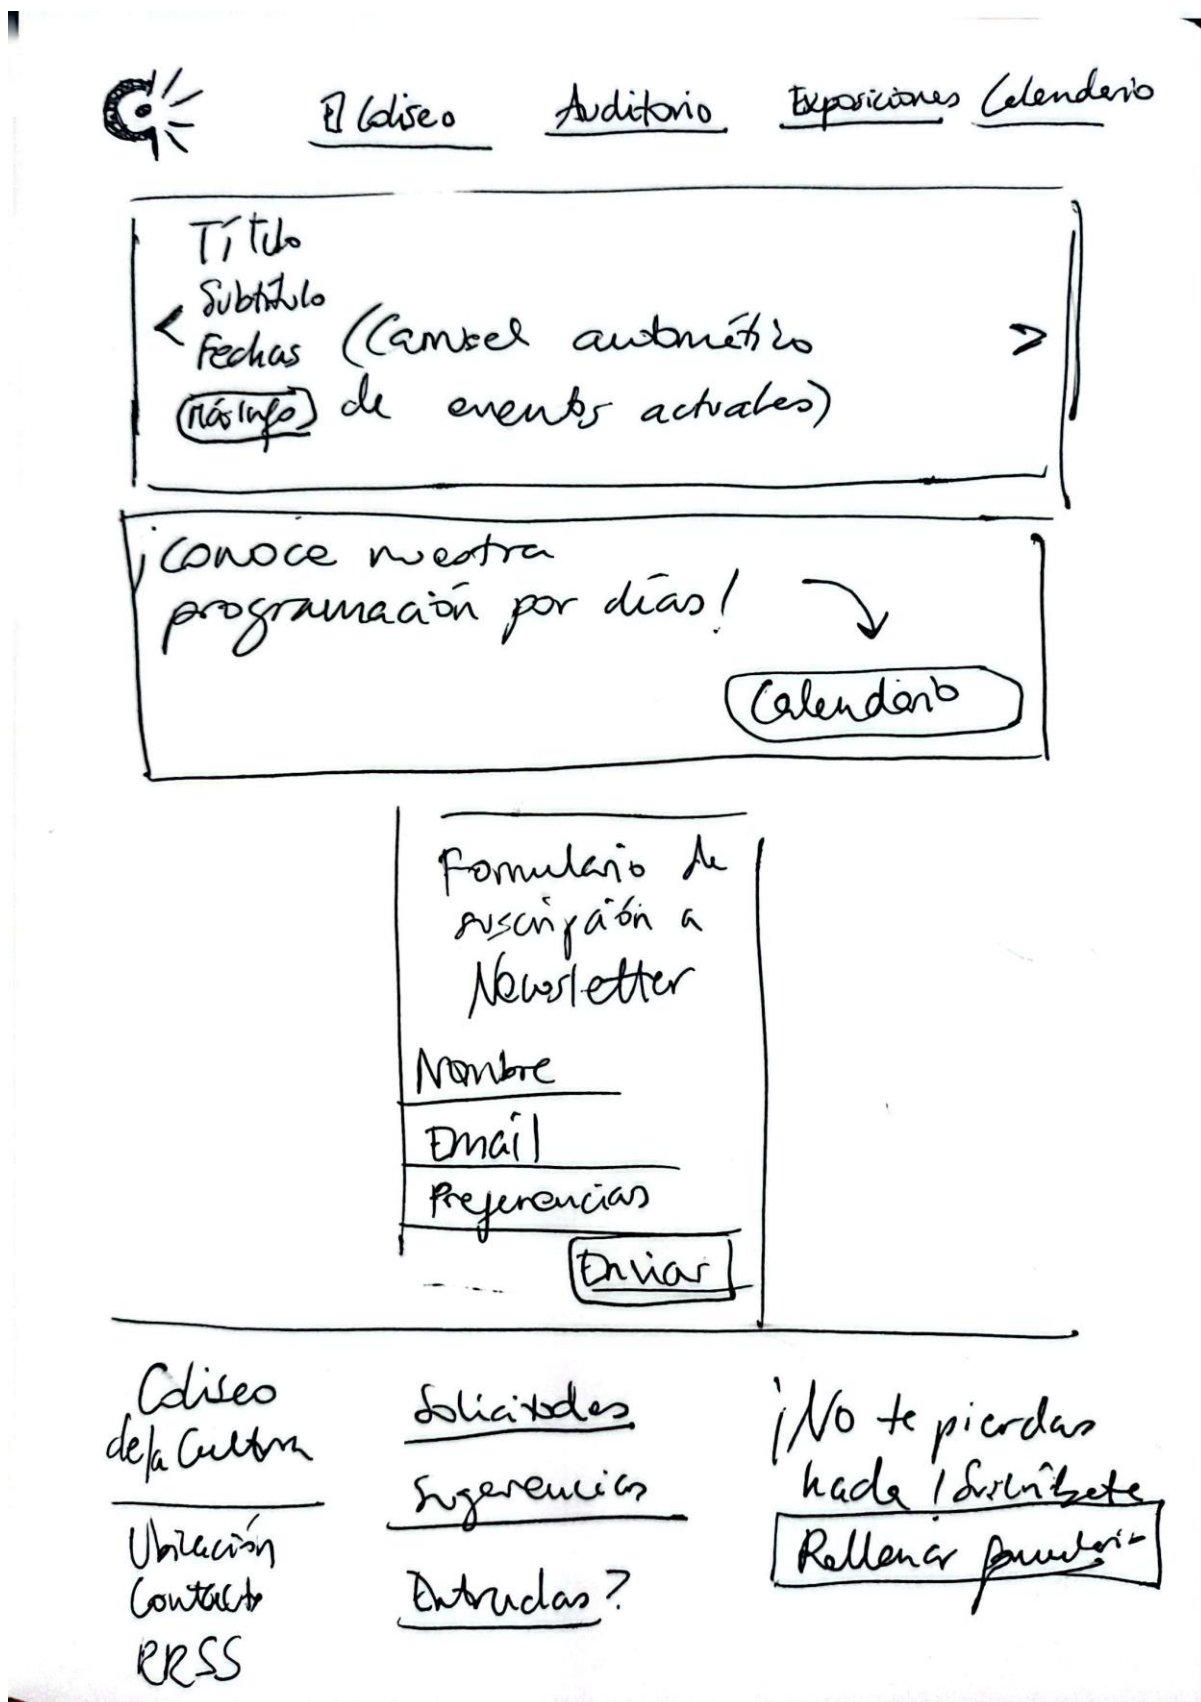 El Coliseo Auditorio Exposiciones Calendario
Título
Subtítulo
< Fechas (Carrusel automático >
Más info de eventos actuales)
¡Conoce nuestra
programación por días!
Calendario
Formulario de
suscripción a
Newsletter
Nombre
Email
Preferencias
Enviar
Coliseo
de la Cultura
Ubicación
Contacto
RRSS
Solicitudes
Sugerencias
Entradas?
¡No te pierdas
nada! Suscríbete
Rellenar formulario